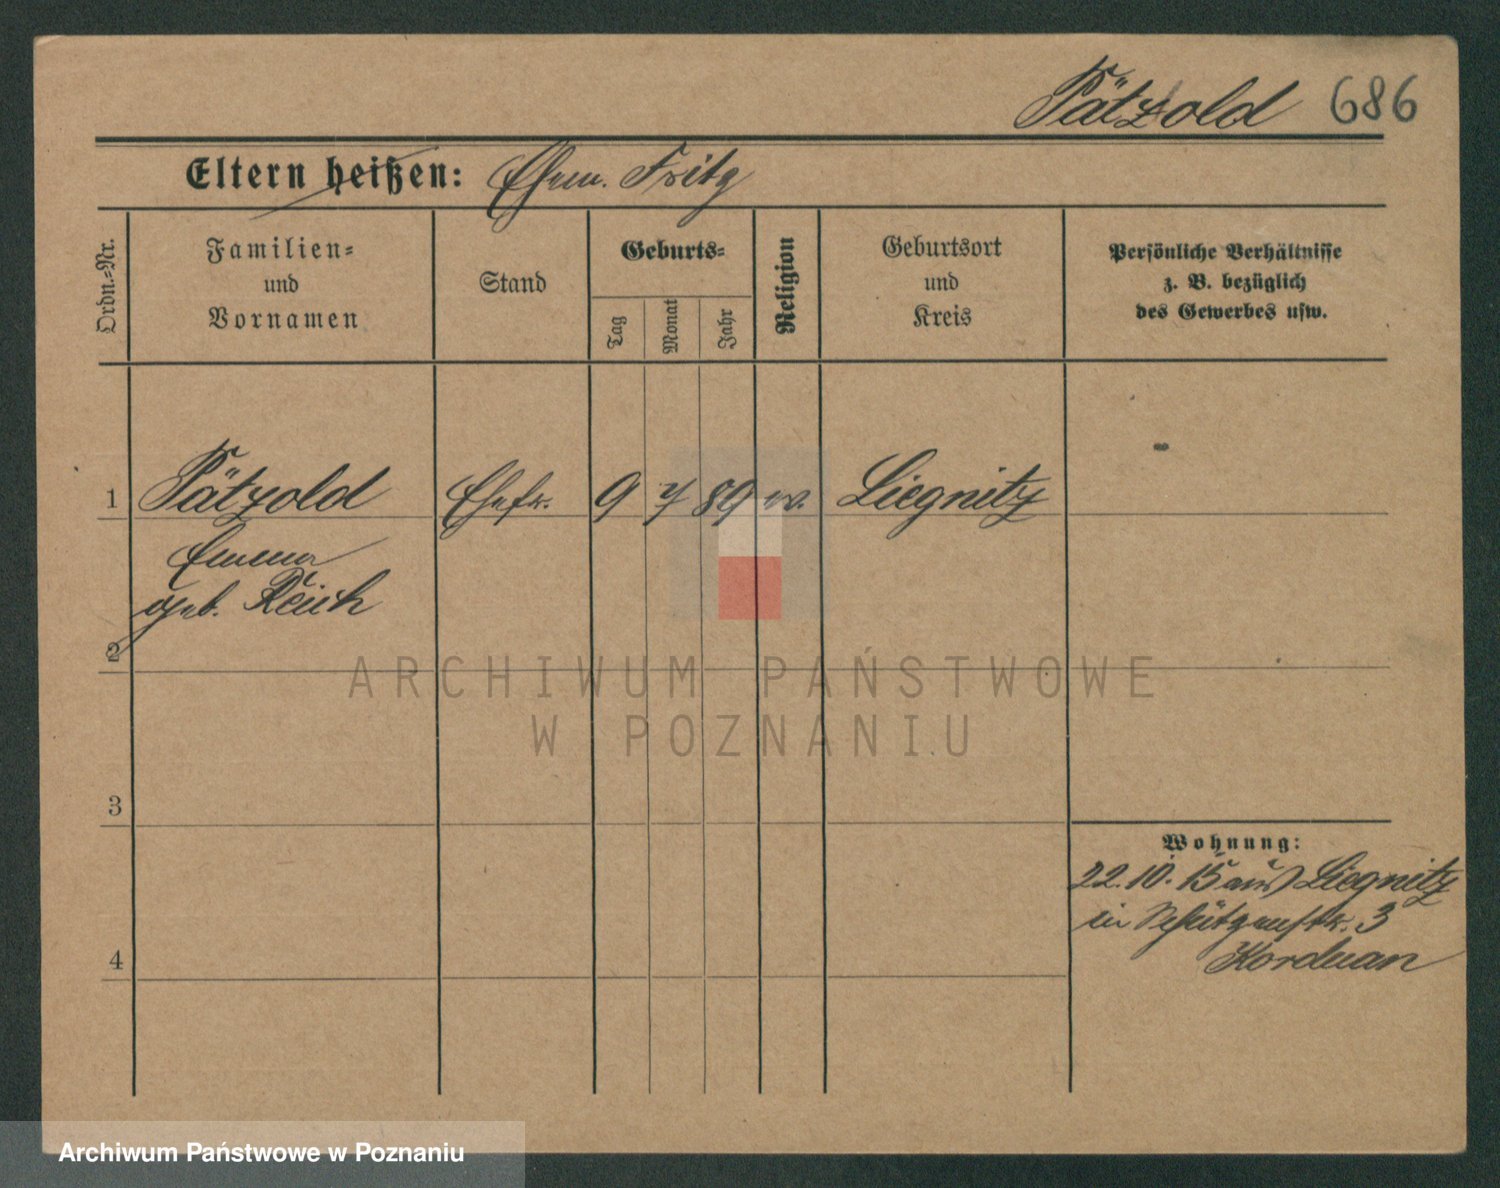 Pätzold 686
Eltern heißen: Ehem. Fritz
Ordn.-Nr.
Familien-
und
Vornamen
Stand
Geburts-
Tag
Monat
Jahr
Religion
Geburtsort
und
Kreis
Persönliche Verhältnisse
z. B. bezüglich
des Gewerbes usw.
1 Pätzold Ehefr. 9 7 89 Liegnitz
Emma
geb. Reich
2
ARCHIWUM PAŃSTWOWE
W POZNANIU
3
Wohnung:
22.10.15 aus Liegnitz
in Schützenstr. 3
Korduan
4
Archiwum Państwowe w Poznaniu